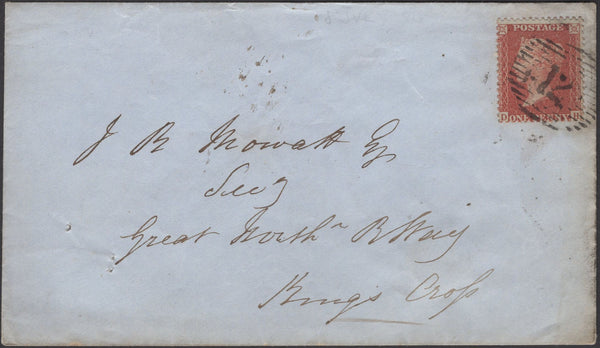 POSTAGE
ONE PENNY
J R Mowatt Esq
Secy
Great Northn R Way
Kings Cross